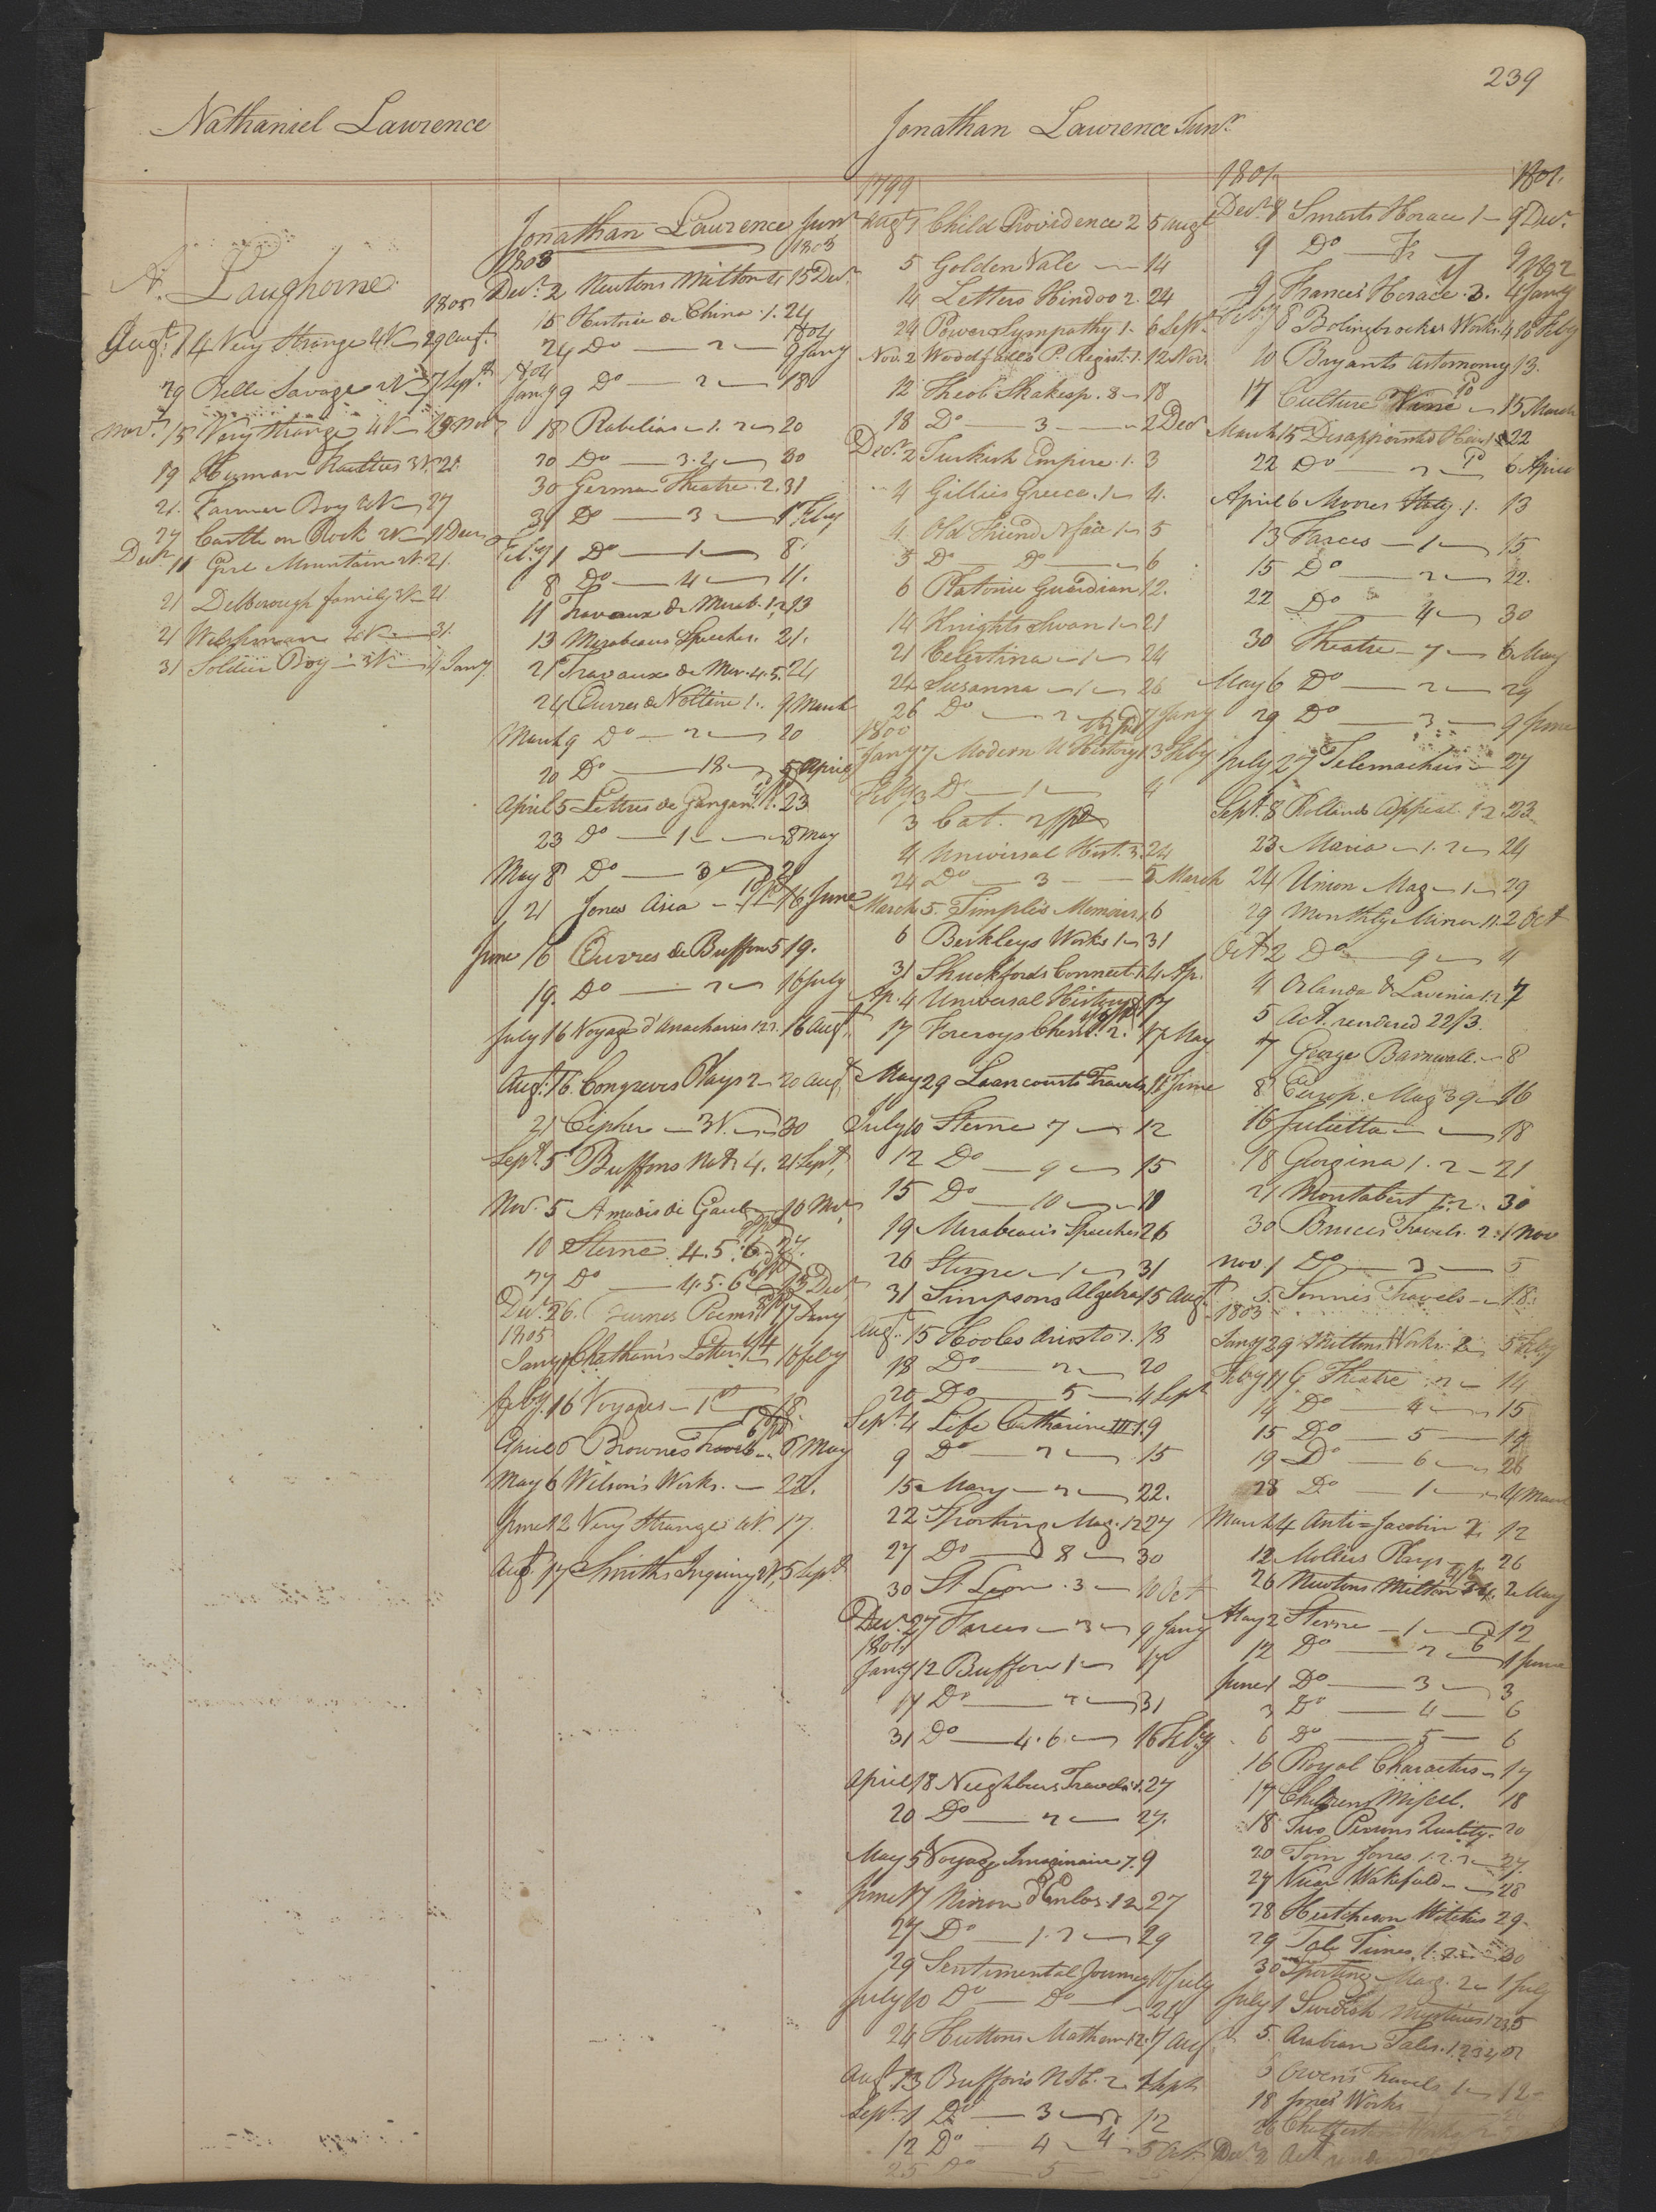 239
Nathaniel Lawrence
A. Langhorne
1805
Augt. 14 Very Strange 4 N — 29 Augt.
29 Belle Savage 2 N — 7 Sept.
Novr. 15 Very Strange 4 N — 19 Novr.
19 Human Frailties 3 N. 21.
21. Farmer Boy 4 N — 27
27 Castle on Rock 2 N — 11 Decr.
Decr. 11 Girl Mountain 2 N. 21.
21 Delborough family 3 N — 21
21 Welshman 4 N — 31.
31 Soldier Boy — 3 N — 4 Jany.
Jonathan Lawrence Junr.
1803 1803
Decr. 2 Newtons Milton 4 15 Decr.
15 Historie de China . 1. 24
24 Do — 2 — 1804 9 Jany
1804
Jany 9 Do — 2 — 18
18 Rabelias — 1. 2 — 20
20 Do — 3. 2 — 30
30 German Theatre . 2. 31
31 Do — 3 — 1 Feby
Feby 1 Do — 1 — 8
8 Do — 4 — 11.
11 Travaux de Mirab. 1. 2 13
13 Mirabeaus Speeches. 21.
21 Travaux de Mir. 4. 5. 24
24 Ouvres de Voltaire 1. . 9 March
March 9 Do — 2 — 20
20 Do — 18 — 5 April
April 5 Lettres de Gangan. 1. 23
23 Do — 1 — 8 May
May 8 Do — 3 — 21
21 Jones Asia — 16 June
June 16 Ouvres de Buffon 5 19.
19. Do — 2 — 16 July
July 16 Voyage d'Anacharsis 1. 2. 16 Augt.
Augt. 16. Congreves Plays 2 — 20 Augt.
21 Cipher — 3 N. — 30
Sept. 5 Buffons Natr. 4. 21 Sept.
Nov. 5 Amadis de Gaul — 10 Nov.
10 Sterne . 4. 5. 6. 27.
27 Do — 4. 5. 6 — 13 Decr.
Decr. 26. Poems 17 Jany
1805
Jany 17 Chatham's Letters — 16 Feby
Feby. 16 Voyages — 1 — 18.
April 6 Brownes Travels — 6 May
May 6 Wilson's Works. — 22.
June 12 Very Strange 4 N. 17.
Augt. 17 Smiths Inquiry 2 N. 5 Sept.
Jonathan Lawrence Junr.
1799
Augt. 1 Child Providence 2 5 Augt
5 Golden Vale — 14
14 Letters Hindoo 2. 24
24 Power Sympathy 1. 6 Sept.
Nov. 2 Woodfalls P. Regist. 1. 12 Nov.
12 Theob. Shakesp. 8 — 18
18 Do — 3 — 2 Decr
Decr. 2 Turkish Empire . 1. 3
4 Gillies Greece . 1 — 4.
4. Old Friend N face 1 — 5
5 Do Do — 6
6 Platonic Guardian 12.
14 Knights Swan 1 — 21
21 Celestina — 1 — 24
24 Susanna — 1 — 26
26 Do — 2 — 7 Jany
1800
Jany 7 Modern U History 1 3 Feby
Feby 3 Do — 1 — 4
3 Cat.
4 Universal Hist. 3. 24
24 Do — 3 — 5 March
March 5. Temple's Memoirs 6
6 Berkleys Works 1 — 31
31 Shuckfords Connect. 1. 4 Ap.
Ap. 4 Universal History 17
17 Forcroys Chem. 2. 17 May
May 29 Liancourts Travels 11 June
July 10 Sterne 7 — 12
12 Do — 9 — 15
15 Do — 10 — 19
19 Mirabeau's Speeches 26
26 Sterne — 1 — 31
31 Simpsons Algebra 15 Augt.
Augt. 15 Hooles Ariosto 1. 18
18 Do — 2 — 20
20 Do — 5 — 4 Sept
Sept. 4 Life Catharine III 1. 9
9 Do — 2 — 15
15 Mary — 2 — 22.
22 Sporting Mag. 12 27
27 Do — 8 — 30
30 St. Leon . 3 — 10 Oct
Decr. 27 Farces — 3 — 9 Jany
1801
Jany 12 Buffon 1 — 17
17 Do — 2 — 31
31 Do — 4. 6. — 16 Feby
April 18 Neighburs Travels 1. 27
20 Do — 2 — 27.
May 5 Voyage Imaginaire 7. 9
June 17 Ninon d'Enclos . 1 2 27
27 Do — 1. 2 — 29
29 Sentimental Journey 10 July
July 10 Do — Do — 24
24 Huttons Mathem 1 2. 7 Augt
Augt. 13 Buffon's N H. 2. 1 Sept
Sept. 1 Do — 3 — 12
12 Do — 4 — 5 Oct.
25 Do — 5 —
1801 1801.
Decr. 8 Smarts Horace 1 — 9 Decr.
9 Do — 2 — 9
1802
9 Francis Horace . 3. 4 Jany
Feby 8 Bolingbrookes Works 4 10 Feby
10 Bryants Astornomy 13.
17 Culture Vine — 15 March
March 15 Disappointed Heir 1 22
22 Do — 2 — 6 April
April 6 Moores Italy . 1. 13
13 Farces — 1 — 15
15 Do — 2 — 22.
22 Do — 4 — 30
30 Theatre — 7 — 6 May
May 6 Do — 2 — 29
29 Do — 3 — 9 June
July 27 Telemachus — 27
Sept. 8 Rollands Appeal. 1 2. 23
23 Maria — 1. 2 — 24
24 Union Mag — 1 — 29
29 Monthly Mirror 11. 2 Oct
Oct. 2 Do — 9 — 4
4 Orlando & Lavinia 1. 2 7
5 Act. rendered 22/3.
7 George Barnwell. — 8
8 Europ. Mag 39 — 16
16 Julietta — 18
18 Georgina 1. 2 — 21
21 Montalbert 1. 2. . 30
30 Bruces Travels. 2. 1 Nov
Nov. 1 Do — 3 — 5
5. Sonnis Travels — 18.
1803
Jany 29 Miltons Works. 2. 5 Feby
Feby 11 G Theatre . 2 — 14
14 Do — 4 — 15
15 Do — 5 — 19
19 Do — 6 — 26
28 Do — 1 — 4 March
March 4 Anti-Jacobin 2. 12
12 Moliers Plays — 26
26 Newtons Milton 3 4. 2 May
May 2 Sterne — 1 — 12
12 Do — 2 — 1 June
June 1 Do — 3 — 3
3 Do — 4 — 6
6 Do — 5 — 6
16 Royal Characters — 17
17 Childrens Miscel. 18
18 Two Persons Quality. 20
20 Tom Jones 1. 2. 3 — 27.
27 Vicar Wakefield — 28
28 Hutcheson Witches 29.
29 Tale Times, 1. 2. — 30
30 Sporting Mag. 2 — 1 July
July 1 Swedish Mysteries 1 2 3 5
5. Arabian Tales. 1. 2 3 4
5 Owen's Travels 1 — 12
18 Jones' Works
26 Chatterton Works
Decr. 2 Act